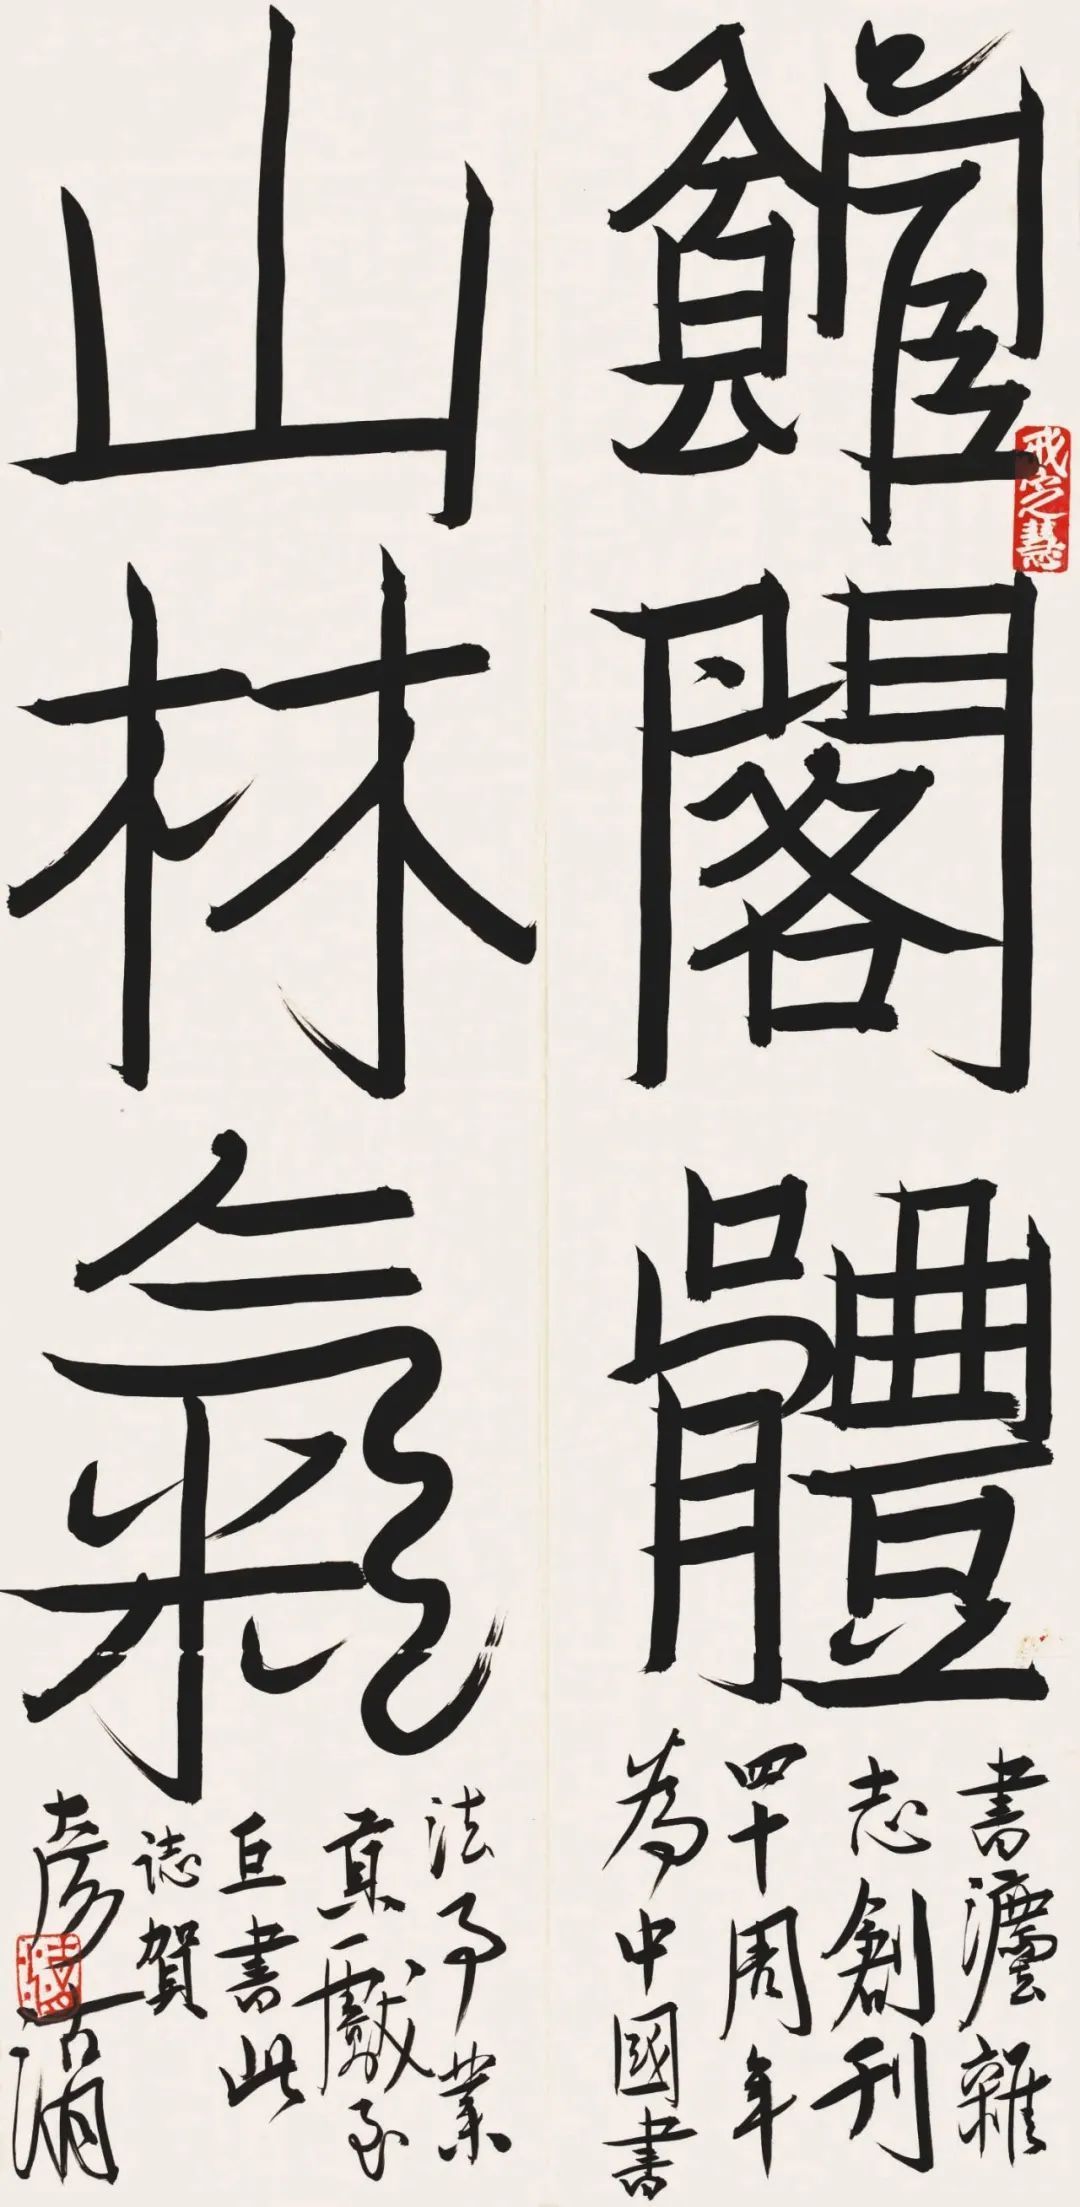 館閣體
山林氣
書灋雜
志創刊
四十周年
為中國書
法事業
貢獻至
巨書此
誌賀
彥湖
戒定慧